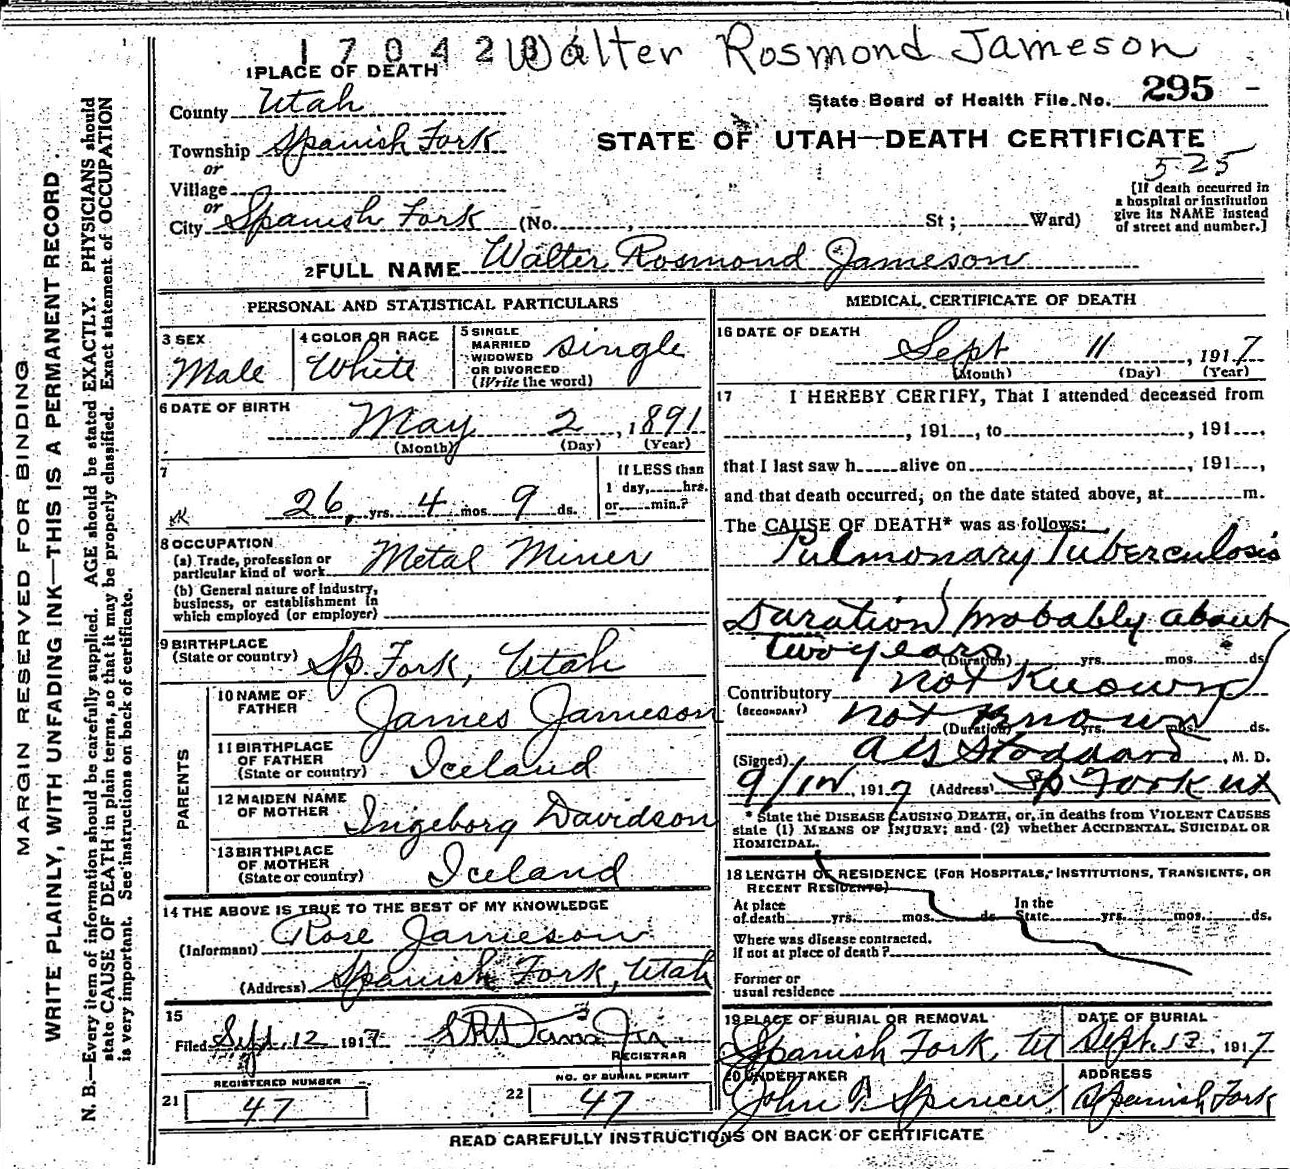 170423 Walter Rosmond Jameson
1 PLACE OF DEATH
County Utah
State Board of Health File No. 295 -
Township Spanish Fork
STATE OF UTAH—DEATH CERTIFICATE
or
Village
525
or
City Spanish Fork (No. , St; Ward)
[If death occurred in
a hospital or institution
give its NAME instead
of street and number.]
2 FULL NAME Walter Rosmond Jameson
PERSONAL AND STATISTICAL PARTICULARS
3 SEX
Male
4 COLOR OR RACE
White
5 SINGLE
MARRIED
WIDOWED
OR DIVORCED
(Write the word)
single
6 DATE OF BIRTH
May 2, 1891
(Month) (Day) (Year)
7
26 yrs. 4 mos. 9 ds.
If LESS than
1 day, hrs.
or min.?
8 OCCUPATION
(a) Trade, profession or
particular kind of work Metal Miner
(b) General nature of industry,
business, or establishment in
which employed (or employer)
9 BIRTHPLACE
(State or country) Sp. Fork, Utah
PARENTS
10 NAME OF
FATHER James Jameson
11 BIRTHPLACE
OF FATHER
(State or country) Iceland
12 MAIDEN NAME
OF MOTHER Ingeborg Davidson
13 BIRTHPLACE
OF MOTHER
(State or country) Iceland
14 THE ABOVE IS TRUE TO THE BEST OF MY KNOWLEDGE
(Informant) Rose Jameson
(Address) Spanish Fork, Utah
15
Filed Sept. 12 1917
REGISTRAR
REGISTERED NUMBER
21 47
NO. OF BURIAL PERMIT
22 47
MEDICAL CERTIFICATE OF DEATH
16 DATE OF DEATH
Sept 11, 1917
(Month) (Day) (Year)
17 I HEREBY CERTIFY, That I attended deceased from
, 191 , to , 191 ,
that I last saw h alive on , 191 ,
and that death occurred, on the date stated above, at m.
The CAUSE OF DEATH* was as follows:
Pulmonary Tuberculosis
Duration probably about
two years
(Duration) yrs. mos. ds.
Contributory not Known
(SECONDARY)
not Known
(Duration) yrs. mos. ds.
(Signed) Stoddard, M. D.
9/12, 1917 (Address) Sp Fork ut
* State the DISEASE CAUSING DEATH, or, in deaths from VIOLENT CAUSES
state (1) MEANS OF INJURY; and (2) whether ACCIDENTAL, SUICIDAL OR
HOMICIDAL.
18 LENGTH OF RESIDENCE (FOR HOSPITALS, INSTITUTIONS, TRANSIENTS, OR
RECENT RESIDENTS)
At place
of death yrs. mos. ds.
In the
State yrs. mos. ds.
Where was disease contracted,
if not at place of death?
Former or
usual residence
19 PLACE OF BURIAL OR REMOVAL
Spanish Fork Ut
DATE OF BURIAL
Sept. 13, 1917
20 UNDERTAKER
John Spencer
ADDRESS
Spanish Fork
READ CAREFULLY INSTRUCTIONS ON BACK OF CERTIFICATE
MARGIN RESERVED FOR BINDING
WRITE PLAINLY, WITH UNFADING INK—THIS IS A PERMANENT RECORD.
N. B.—Every item of information should be carefully supplied. AGE should be stated EXACTLY. PHYSICIANS should
state CAUSE OF DEATH in plain terms, so that it may be properly classified. Exact statement of OCCUPATION
is very important. See instructions on back of certificate.